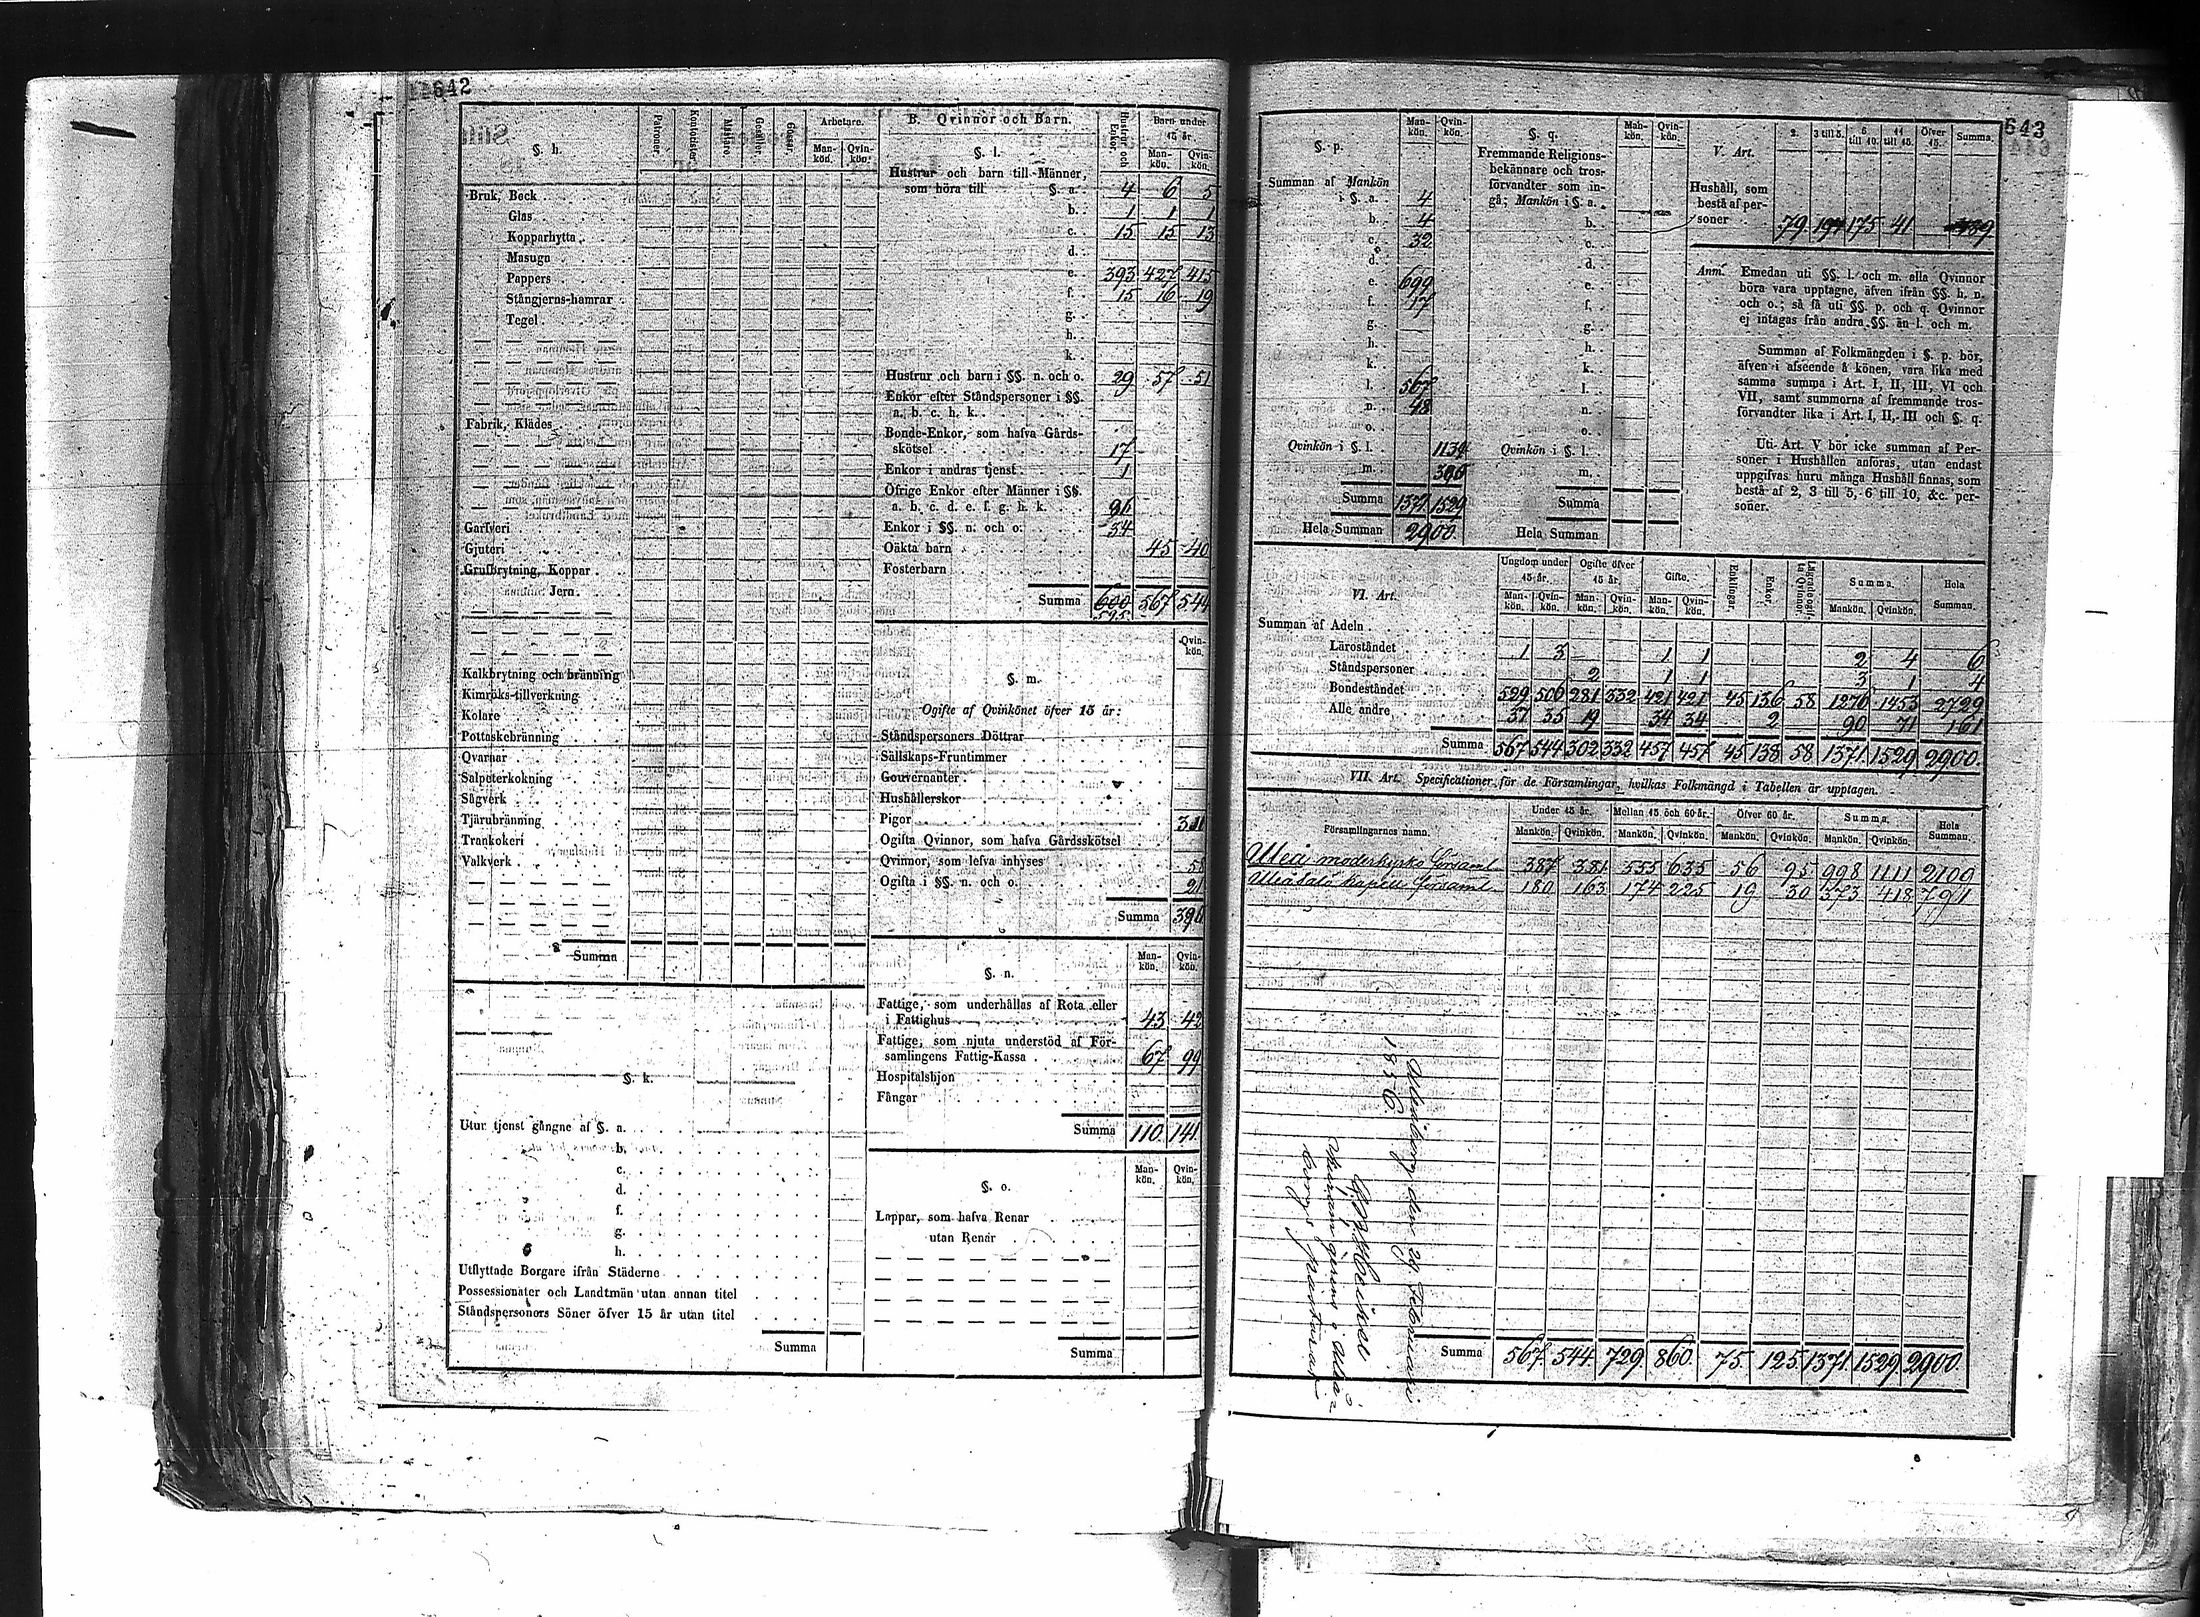 642
§. h.
Patroner.
Kontorister.
Mästare.
Gesäller.
Gossar.
Arbetare.
Man-kön. Qvin-kön.
Bruk, Beck
Glas
Kopparhytta
Masugn
Pappers
Stångjerns-hamrar
Tegel
Fabrik, Klädes
Garfveri
Gjuteri
Grufbrytning, Koppar
Jern
Kalkbrytning och bränning
Kimröks-tillverkning
Kolare
Pottaskebränning
Qvarnar
Salpeterkokning
Sågverk
Tjärubränning
Trankokeri
Valkverk
Summa
§. k.
Utur tjenst gångne af §. a.
b.
c.
d.
f.
g.
h.
Utflyttade Borgare ifrån Städerne
Possessionater och Landtmän utan annan titel
Ståndspersoners Söner öfver 15 år utan titel
Summa
B. Qvinnor och Barn.
Hustrur och Enkor.
Barn under 15 år.
Man-kön. Qvin-kön.
§. l.
Hustrur och barn till Männer,
som höra till §. a. 4 6 5
b. 1 1 1
c. 15 15 13
d.
e. 393 427 415
f. 15 16 19
g.
h.
k.
Hustrur och barn i §§. n. och o. 29 57 51
Enkor efter Ståndspersoner i §§.
a. b. c. h. k.
Bonde-Enkor, som hafva Gårds-
skötsel 17
Enkor i andras tjenst 1
Öfrige Enkor efter Männer i §§.
a. b. c. d. e. f. g. h. k.
Enkor i §§. n. och o.
Oäkta barn 45 40
Fosterbarn
Summa 600 567 544
595
Qvin-kön.
§. m.
Ogifte af Qvinkönet öfver 15 år:
Ståndspersoners Döttrar
Sällskaps-Fruntimmer
Gouvernanter
Hushållerskor
Pigor
Ogifta Qvinnor, som hafva Gårdsskötsel
Qvinnor, som lefva inhyses 58
Ogifta i §§. n. och o. 21
Summa 390
Man-kön. Qvin-kön.
§. n.
Fattige, som underhållas af Rota eller
i Fattighus 43 42
Fattige, som njuta understöd af För-
samlingens Fattig-Kassa 67 99
Hospitalshjon
Fångar
Summa 110 141
Man-kön. Qvin-kön.
§. o.
Lappar, som hafva Renar
utan Renar
Summa
643
§. p. Man-kön. Qvin-kön.
Summan af Mankön
i §. a. 4
b. 4
c. 32
d.
e. 699
f. 17
g.
h.
k.
l. 567
n. 48
o.
Qvinkön i §. l. 1134
m.
Summa 1371 1529
Hela Summan 2900.
§. q. Man-kön. Qvin-kön.
Fremmande Religions-
bekännare och tros-
förvandter som in-
gå; Mankön i §. a.
b.
c.
d.
e.
f.
g.
h.
k.
l.
n.
o.
Qvinkön i §. l.
m.
Summa
Hela Summan
V. Art. 2. 3 till 5. 6 till 10. 11 till 15. Öfver 15. Summa.
Hushåll, som
bestå af per-
soner 79 175 41
Anm. Emedan uti §§. l. och m. alla Qvinnor
böra vara upptagne, äfven ifrån §§. h. n.
och o.; så få uti §§. p. och q. Qvinnor
ej intagas från andra §§. än l. och m.
Summan af Folkmängden i §. p. bör,
äfven i afseende å könen, vara lika med
samma summa i Art. I, II, III, VI och
VII, samt summorna af fremmande tros-
förvandter lika i Art. I, II, III och §. q.
Uti Art. V bör icke summan af Per-
soner i Hushållen anföras, utan endast
uppgifvas huru många Hushåll finnas, som
bestå af 2, 3 till 5, 6 till 10, &c. per-
soner.
VI. Art.
Ungdom under 15 år. Ogifte öfver 15 år. Gifte. Enklingar. Enkor. Lägrade ogifta Qvinnor. Summa. Hela Summan.
Man-kön. Qvin-kön. Man-kön. Qvin-kön. Man-kön. Qvin-kön. Mankön. Qvinkön.
Summan af Adeln
Läroståndet 1 3 1 1 2 4 6
Ståndspersoner 2 1 1 3 1 4
Bondeståndet 529 506 281 332 421 421 45 136 58 1276 1453 2729
Alle andre 37 35 19 34 34 2 90 71 161
Summa 567 544 302 332 457 457 45 138 58 1371 1529 2900.
VII. Art. Specificationer för de Församlingar, hvilkas Folkmängd i Tabellen är upptagen.
Församlingarnes namn. Under 15 år. Mellan 15 och 60 år. Öfver 60 år. Summa. Hela Summan.
Mankön. Qvinkön. Mankön. Qvinkön. Mankön. Qvinkön. Mankön. Qvinkön.
Uleå moderkyrko församl. 387 381 555 635 56 95 998 1111 2109
Uleåsalo kapell församl. 180 163 174 225 19 30 373 418 791
Summa 567. 544. 729. 860. 75. 125. 1371. 1529. 2900.
Uleåborg, den 29 Februari
1856.